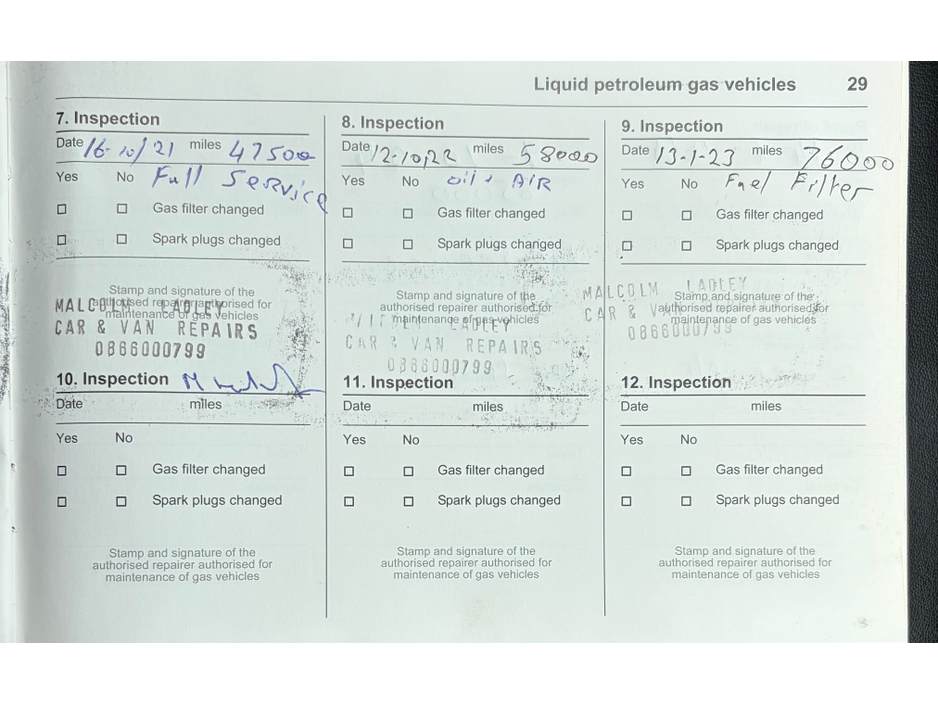 Liquid petroleum gas vehicles 29
7. Inspection
Date 16-10/21 miles 47500
Yes No Full Service
Gas filter changed
Spark plugs changed
Stamp and signature of the
authorised repairer authorised for
maintenance of gas vehicles
MALCOLM LADLEY
CAR & VAN REPAIRS
0866000799
8. Inspection
Date 12-10,22 miles 58000
Yes No oil + AIR
Gas filter changed
Spark plugs changed
Stamp and signature of the
authorised repairer authorised for
maintenance of gas vehicles
LADLEY
CAR & VAN REPAIRS
0866000799
9. Inspection
Date 13-1-23 miles 76000
Yes No Fuel Filter
Gas filter changed
Spark plugs changed
Stamp and signature of the
authorised repairer authorised for
maintenance of gas vehicles
MALCOLM LADLEY
CAR & VAN
0866000799
10. Inspection
Date miles
Yes No
Gas filter changed
Spark plugs changed
Stamp and signature of the
authorised repairer authorised for
maintenance of gas vehicles
11. Inspection
Date miles
Yes No
Gas filter changed
Spark plugs changed
Stamp and signature of the
authorised repairer authorised for
maintenance of gas vehicles
12. Inspection
Date miles
Yes No
Gas filter changed
Spark plugs changed
Stamp and signature of the
authorised repairer authorised for
maintenance of gas vehicles